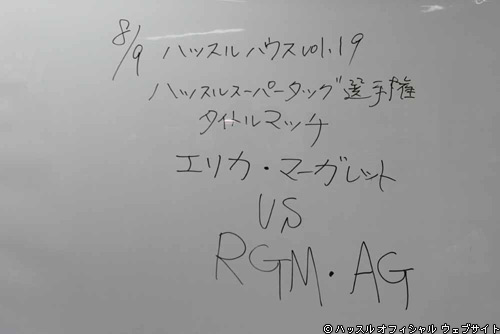 8/9 ハッスルハウスvol.19
ハッスルスーパータッグ選手権
タイトルマッチ
エリカ・マーガレット
VS
RGM・AG
© ハッスル オフィシャル ウェブサイト